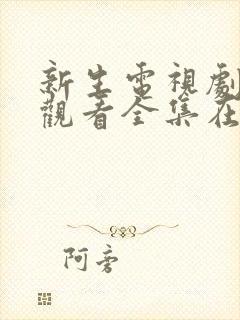 新生電視劇
觀看全集在
阿旁